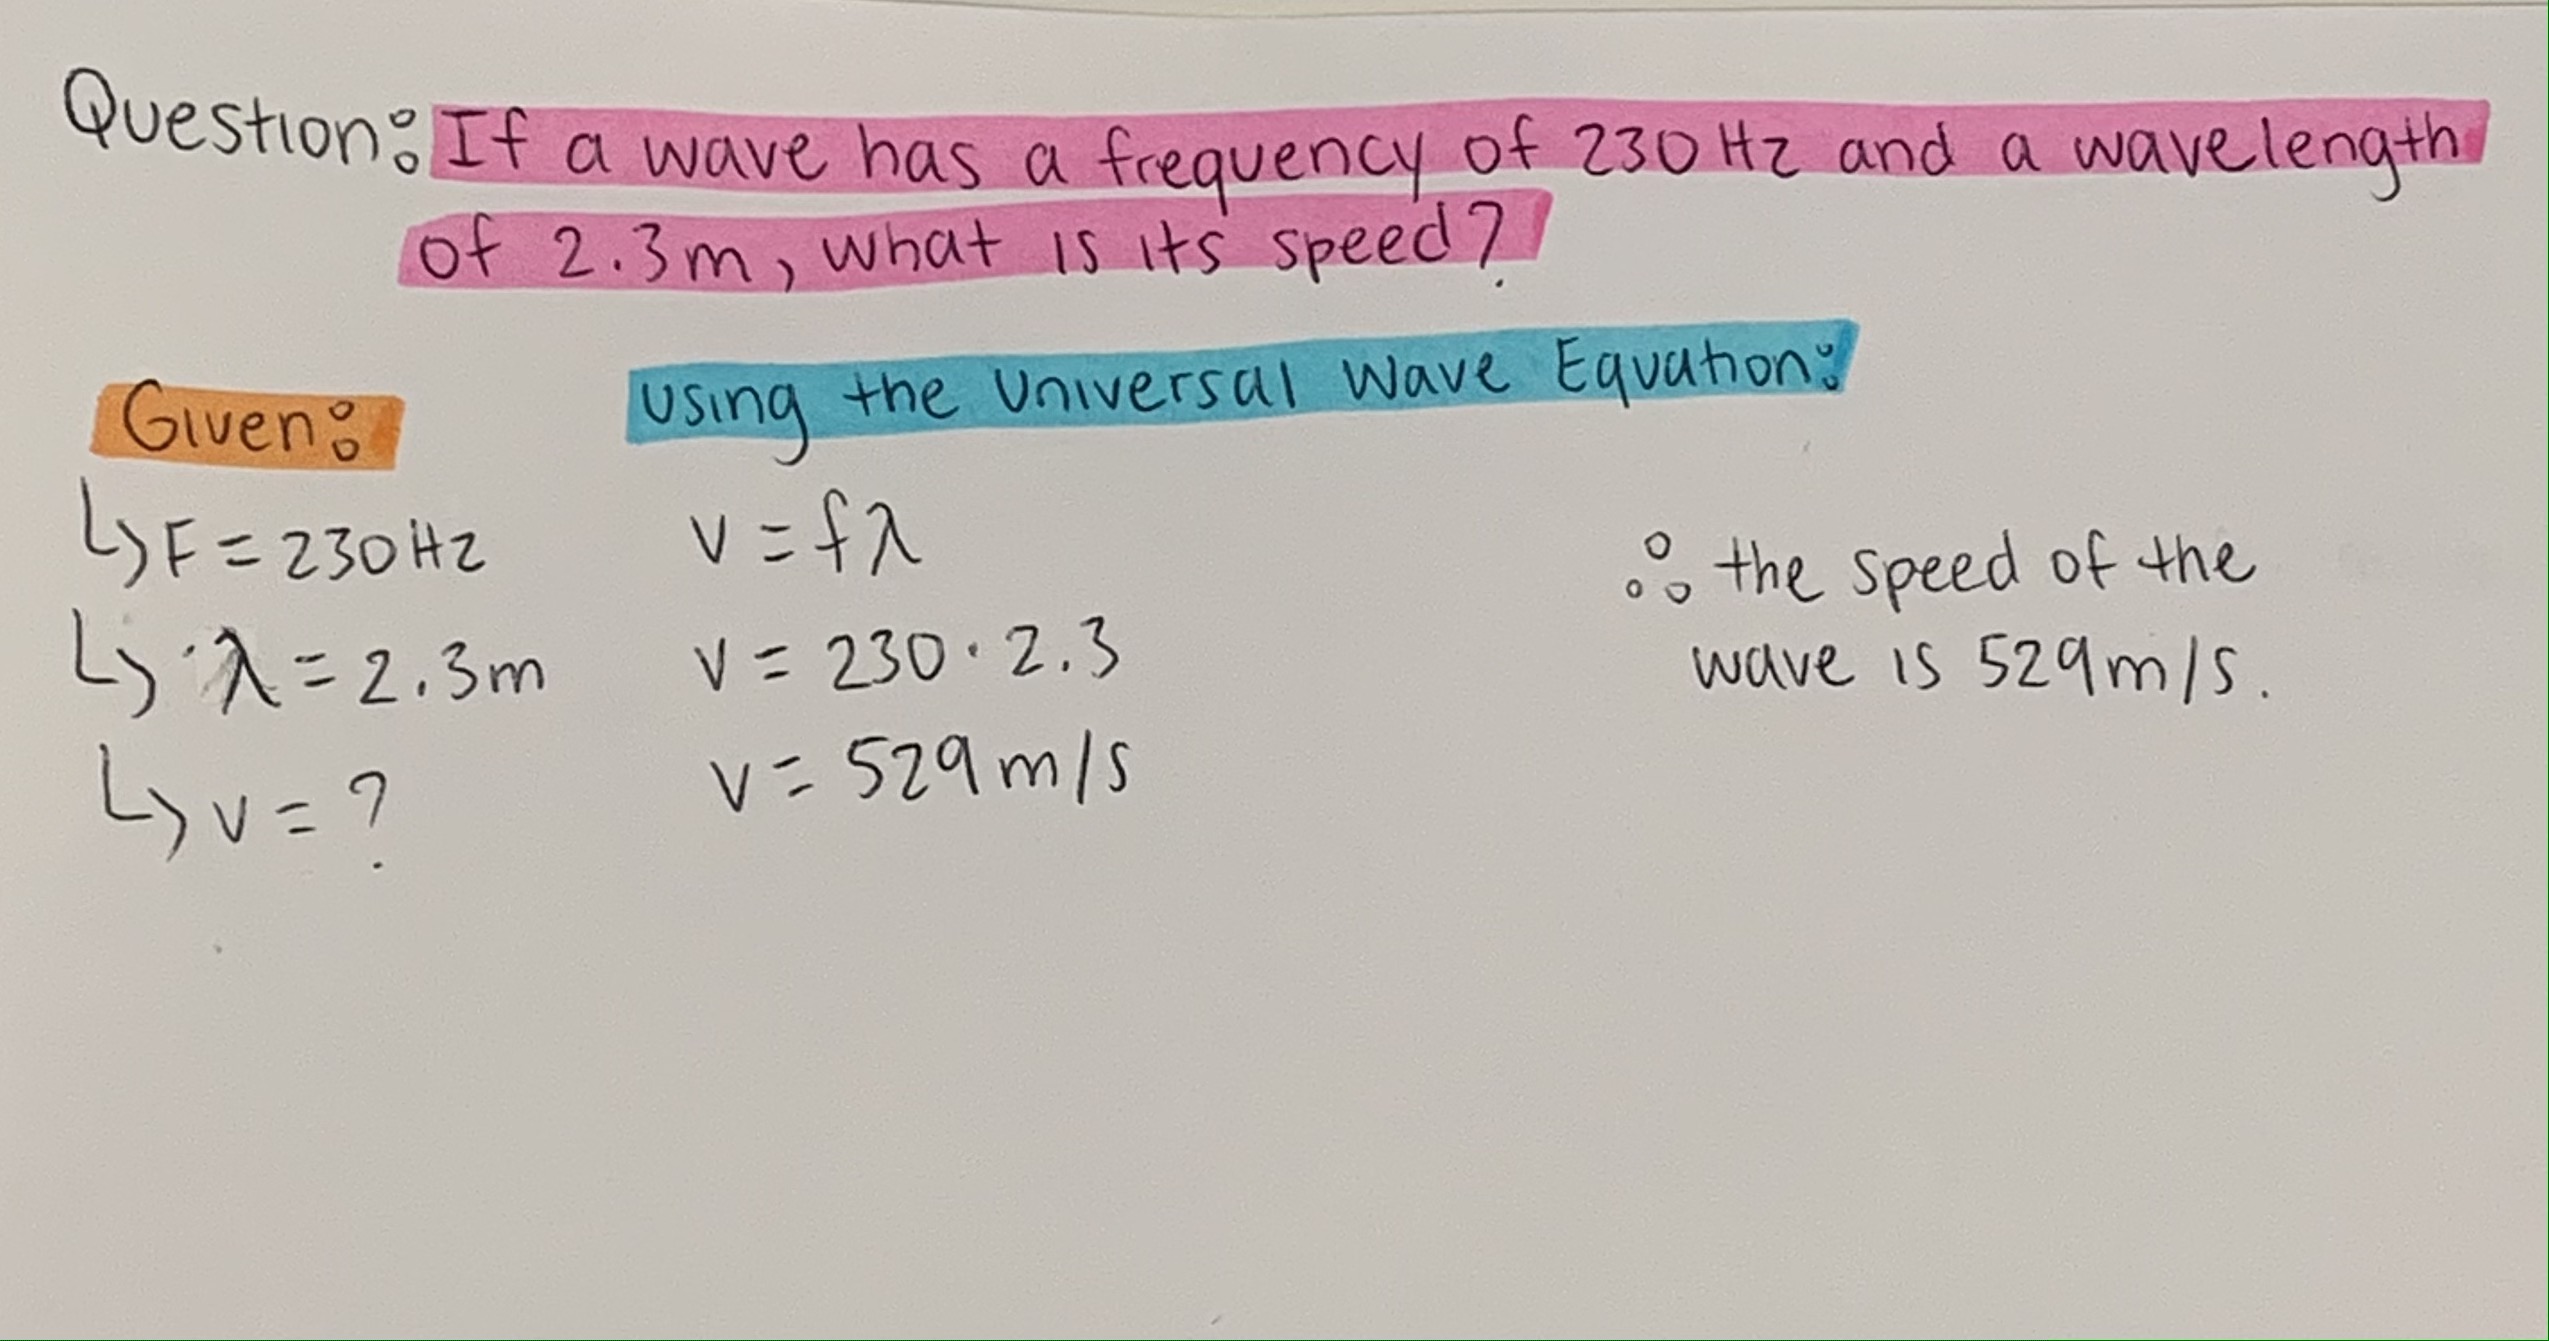 Question: If a wave has a frequency of 230 Hz and a wavelength
of 2.3m, what is its speed?
Given:
↳ F = 230 Hz
↳ λ = 2.3m
↳ v = ?
using the Universal Wave Equation:
v = fλ
v = 230 · 2.3
v = 529 m/s
∴ the speed of the
wave is 529 m/s.